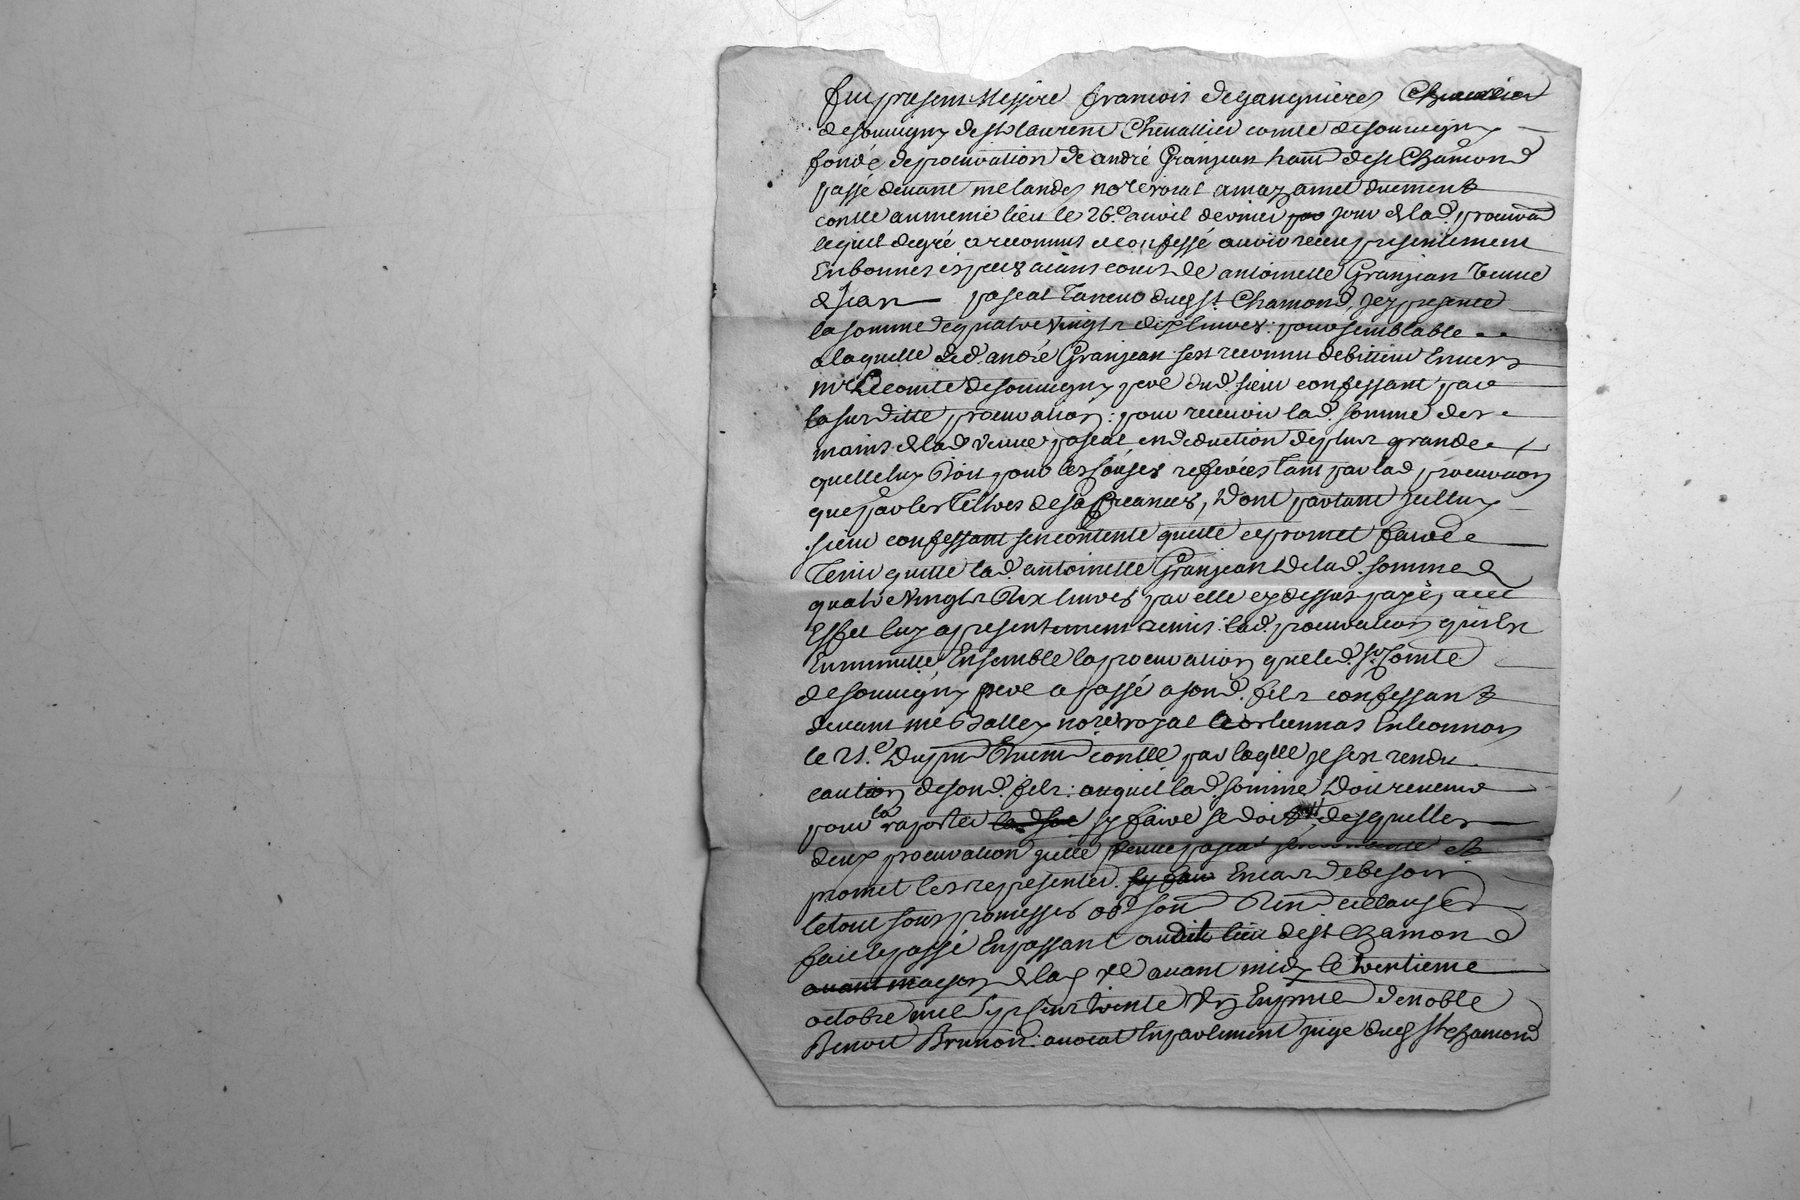 fut present Messire francois desgangnieres
desouvigny de st laurent Chevallier comte desouvigny
fondé de procuration de andré Granjean hant de st Chamond
passé devant me landes nore royal a mazamet duement
conlle au meme lieu le 26e avril dernier jour de lad. procuraon
lequel degré a reconnu et confessé avoir receu presentement
En bonnes especes aiant cours de antoinette Granjean veuve
de Jean pascal dud st Chamond, jcy presente
la somme de quatre vingts dix livres: pour semblable
a laquelle led. andré Granjean sest reconnu debitteur Envers
mre Le comte desouvigny pere dud. sieur confessant par
la surditte procuration: pour recevoir lad. somme des
mains de lad veuve pascal en deduction de plus grande
quelle luy doit pour les causes referées tant par lad procuraon
que par les tiltres de sa Creances, Dont partant jcelluy
sieur confessant sen contente quitte et promet faire
tenir quitte lad. antoinette Granjean de lad. somme de
quatre vingts dix livres par elle cy dessus payé, a cet
Effet luy a presentement remis lad. procuration quil
Ensemble la procuration que led. sr Comte
de souvigny pere a passé a son d. fils confessant
devant me nore royal
le 21e conlle par laqlle jl sest rendu
caution de son d. fils: auquel lad. somme doit revenir
pour la raporter sy faire se doit desquelles
deux procuration veuve pascal et
promet les representer En cas de besoin
le tout sous promesses obon soumon Renon et clauses
fait et passé En passant audit lieu de st Chamond
avant midy le trentieme
octobre mil sept cens trente En presence de noble
Benoit Brunon avocat En parlement juge dud st chamond